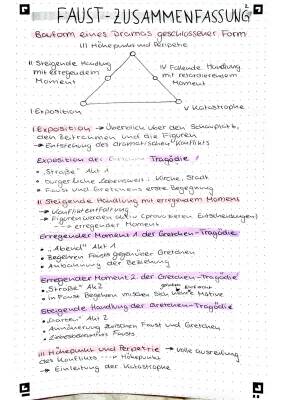 FAUST-ZUSAMMENFASSUNG 2
Bauform eines Dramas geschlossener Form
III Höhepunkt und Peripetie
II Steigende Handlung mit erregendem Moment
IV Fallende Handlung mit retardierendem Moment
I Exposition
V Katastrophe
I Exposition → Überblick über den Schauplatz,
den Zeitraumen und die Figuren
→ Entstehung des dramatischen Konflikts
Exposition der Gretchen Tragödie
• „Straße" Akt 1
• bürgerliche Lebenswelt: Kirche, Stadt
• Faust und Gretchens erste Begegnung
II Steigende Handlung mit erregendem Moment
→ Konfliktentfaltung
→ Figuren werden aktiv (provozieren Entscheidungen)
---> erregender Moment
Erregender Moment 1 der Gretchen-Tragödie
• „Abend" Akt 1
• Begehren Fausts gegenüber Gretchen
• Anbahnung der Beziehung
Erregender Moment 2 der Gretchen-Tragödie
• „Straße" Ak2
• in Faust Begehren mischen sich Motive
Steigende Handlung der Gretchen-Tragödie
• „Garten" Akt 2
• Annäherung zwischen Faust und Gretchen
• Liebesbekenntnis Fausts
III Höhepunkt und Peripetie → volle Ausreifung
des Konflikts ---> Höhepunkt
→ Einleitung der Katastrophe